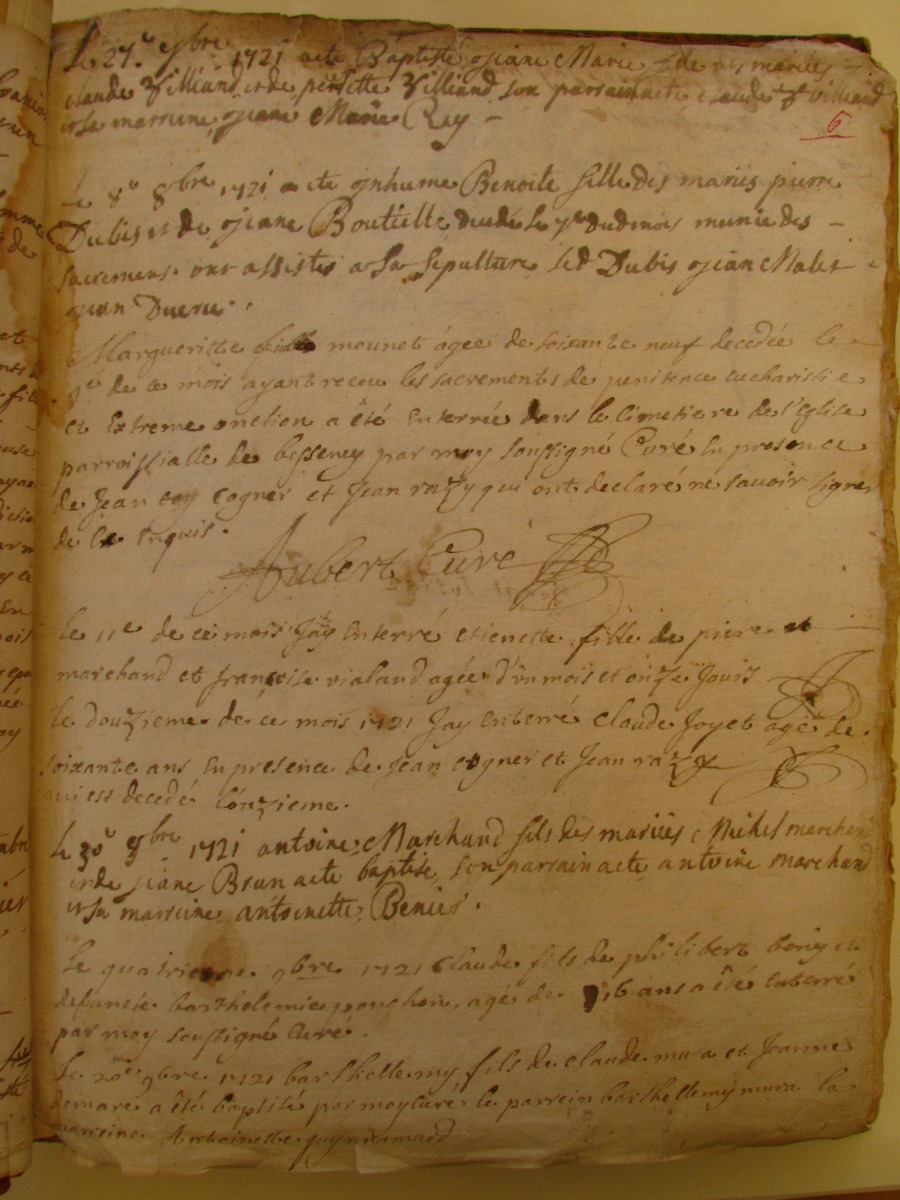 Le 27e 7bre 1721 a ete Baptisé jeane Marie fille des mariés
claude Villiand et de pernette Villiand son parrain a ete claude Villiand
et sa marreine jeane Marie Rey
6
Le 8e 8bre 1721 a ete inhumé Benoite fille des mariés pierre
Dubis et de jeane Boutielle decedé le 7e du dmois munie des
sacremens ont assistes a sa sepulture led Dubis jean Malet
jean
Margueritte mounet âgée de soixante neuf decedée le
9e de ce mois ayant receu les sacrements de penitence eucharistie
et Extreme onction a été Enterrée dans le Cimetiere de l'Eglise
parroissialle de besseney par moy soussigné Curé En presence
de Jean cogner et Jean razy qui ont declaré ne savoir signer
de ce Enquis.
Aubert Curé
Le 11e de ce mois Jay Enterré etienette fille de piere
marchand et françoise vialand agée d'un mois et onze Jours
Le douzieme de ce mois 1721 Jay enterré claude Joyet agé de
soixante ans En presence de Jean cogner et Jean razy
qui est decedé l'onzieme.
Le 30e 8bre 1721 antoine Marchand fils des mariés Michel marchand
et de jeane Brun a ete baptisé, son parrain a ete antoine marchand
et sa marreine antoinette Benier.
Le quatrieme 9bre 1721 Claude fils de philibert boiry et
defuncte barthelemie ponchon, agé de ans a été Enterré
par moy soussigné Curé.
Le 20e 9bre 1721 barthellemy fils de claude mura et Jeanne
demare a été baptisé par moy Curé le parrein barthellemy mura la
marreine Antoinette